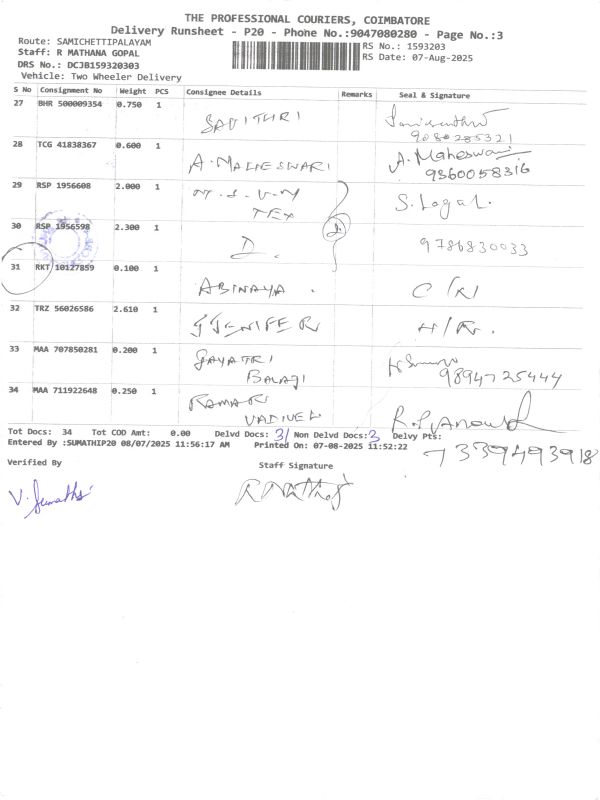 THE PROFESSIONAL COURIERS, COIMBATORE
Delivery Runsheet - P20 - Phohe No.:9047080280 - Page No.:3
Route: SAMICHETTIPALAYAM
RS No.: 1593203
Staff: R MATHANA GOPAL
RS Date: 07-Aug-2025
DRS No.: DCJB159320303
Vehicle: Two Wheeler Delivery
S No Consignment No Weight PCS Consignee Details Remarks Seal & Signature
27 BHR 500009354 0.750 1 SAVITHRI
9080285321
28 TCG 41838367 0.600 1 A. MAHESWARI A. Maheswari
9360058316
29 RSP 1956608 2.000 1 M.S.V.M S. Logal.
TEX
30 RSP 1956598 2.300 1 D. 2. 9786830033
31 RKT 10127859 0.100 1 ABINAYA . C/R1
32 TRZ 56026586 2.610 1 J JENIFER H/R.
33 MAA 707850281 0.200 1 GAYATRI
BALAJI 9894725444
34 MAA 711922648 0.250 1 RAMAR
VADIVEL
Tot Docs: 34 Tot COD Amt: 0.00 Delvd Docs: 31 Non Delvd Docs: 3 Delvy Pts:
7339493918
Entered By :SUMATHIP20 08/07/2025 11:56:17 AM Printed On: 07-08-2025 11:52:22
Verified By
Staff Signature
V. Sumathi